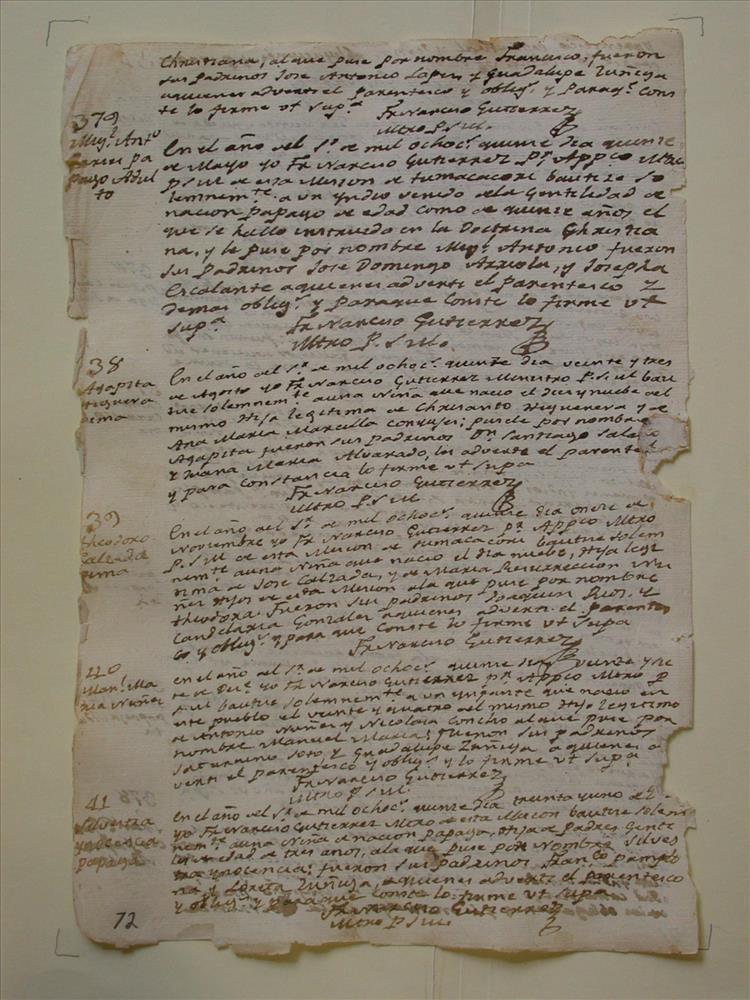 Christiana, al que puse por nombre Francisco, fueron
sus Padrinos Jose Antonio Lopez y Guadalupe Zuñiga
aquienes adverti el parentesco y obligⁿ. y Paraqᵉ. Cons
te lo firme vt supᵃ
Fr Narciso Gutierrez
Mtro P. S. M.
379
Migˡ. Antᵒ
pa
pago Adul
to
En el año del Sʳ. de mil ochocˢ. quinze dia quinze
de Mayo yo Fr Narciso Gutierrez Pʳ. Appᶜᵒ Mtro
P S M de esta Mision de tumacacori bautize So
lemnemᵗᵉ. a un yndio venido de la Gentilidad de
nacion Papago de edad como de quinze años el
que se hallo instruido en la Doctrina Christia
na, y le puse por nombre Migˡ Antonio fueron
sus Padrinos Jose Domingo Arriola, y Josepha
Escalante aquienes adverti el Parentesco y
demas obligˢ. y Paraque Conste lo firme vt
supᵃ
Fr Narciso Gutierrez
Mtro P. S M.
38
Agapita
Higuera
pima
En el año del Sʳ. de mil ochocˢ. quinze dia veinte y tres
de Agosto yo Fr Narciso Gutierrez Ministro P. S. M bau
tize solemnemᵗᵉ auna Niña que nacio el diez y nuebe del
mismo Hija legitima de Chrisanto Higuera y de
Ana Maria Marcella conyuges; pusele por nombre
Agapita fueron sus padrinos Dⁿ Santiago
y Juana Maria Alvarado, los adverti el parentesco
y para constancia lo firme vt supa
Fr Narciso Gutierrez
Mtro P S M
39
Theodora
Calzada
pima
En el año del Sʳ. de mil ochocˢ. quinze dia onze de
Noviembre yo Fr Narciso Gutierrez Pʳ. Appᶜᵒ Mtro
P. S M de esta Mision de tumacacori bautize solem
nemᵗᵉ auna Niña que nacio el dia nuebe, Hija legi
tima de Jose Calzada, y de Maria Resurreccion Nu
ñez Hijos de esta Mision ala que puse por nombre
theodora. Fueron sus padrinos Joaquin Rios, y
Candelaria Gonzalez aquienes adverti el parentes
co y obligⁿ y para que Conste lo firme vt supa
Fr Narciso Gutierrez
40
Manˡ Ma
ria Nuñez
en el año del Sʳ. de mil ochocˢ. quinze dia veinte y sie
te de Dicᵉ yo Fr Narciso Gutierrez pʳ. Appᶜᵒ Mtro P
S M bautize solemnemᵗᵉ a un ynfante que nacio en
este pueblo el veinte y quatro del mismo Hijo legitimo
de Antonio Nuñez y Nicolasa Concho al que puse por
nombre Manuel Maria; fueron sus padrinos
Saturnino Soto, y Guadalupe Zuñiga a quienes a
verti el parentesco y obligⁿ y lo firme vt supa
Fr Narciso Gutierrez
Mtro P S M
41
Silvestra
ynocencia
papaga
en el año del Sʳ. de mil ochocˢ. quinze dia treinta yuno de
yo Fr Narciso Gutierrez Mtro de esta Mision bautize solem
nemᵗᵉ auna Niña de nacion Papaga, Hija de Padres Genti
les de edad de tres años, ala que puse por Nombre Silves
tra ynocencia: fueron sus padrinos Franᶜᵒ Pamplo
na y Loreta Zuñiga, aquienes adverti el parentesco
y obligⁿ y para que Conste lo firme vt supa
Fr Narciso Gutierrez
Mtro P S M
72